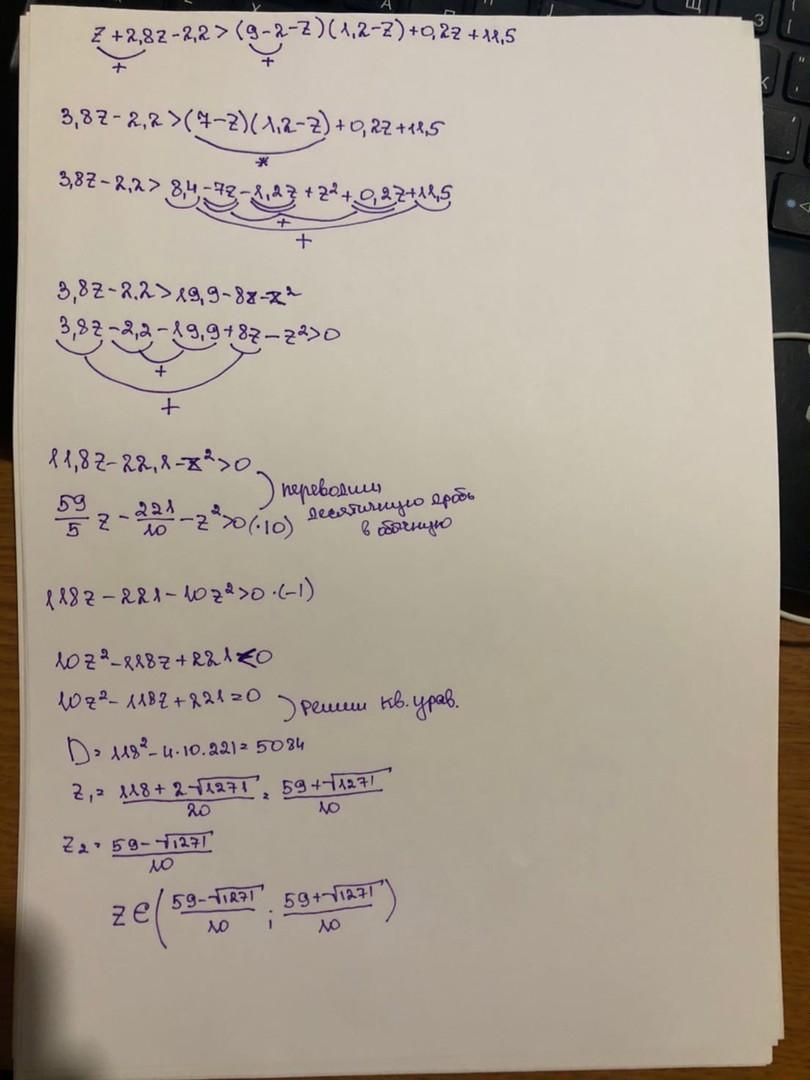 z + 2,8z - 2,2 > (9 - 2 - z)(1,2 - z) + 0,2z + 11,5
+ +
3,8z - 2,2 > (7 - z)(1,2 - z) + 0,2z + 11,5
*
3,8z - 2,2 > 8,4 - 7z - 1,2z + z² + 0,2z + 11,5
+
+
3,8z - 2,2 > 19,9 - 8z - z²
3,8z - 2,2 - 19,9 + 8z - z² > 0
+
+
11,8z - 22,1 - z² > 0
переводим
десятичную дробь
в обычную
59/5 z - 221/10 - z² > 0 (·10)
118z - 221 - 10z² > 0 ·(-1)
10z² - 118z + 221 < 0
10z² - 118z + 221 = 0 решим кв. урав.
D = 118² - 4·10·221 = 5084
z₁ = (118 + 2√1271)/20 = (59 + √1271)/10
z₂ = (59 - √1271)/10
z ∈ ((59 - √1271)/10 ; (59 + √1271)/10)